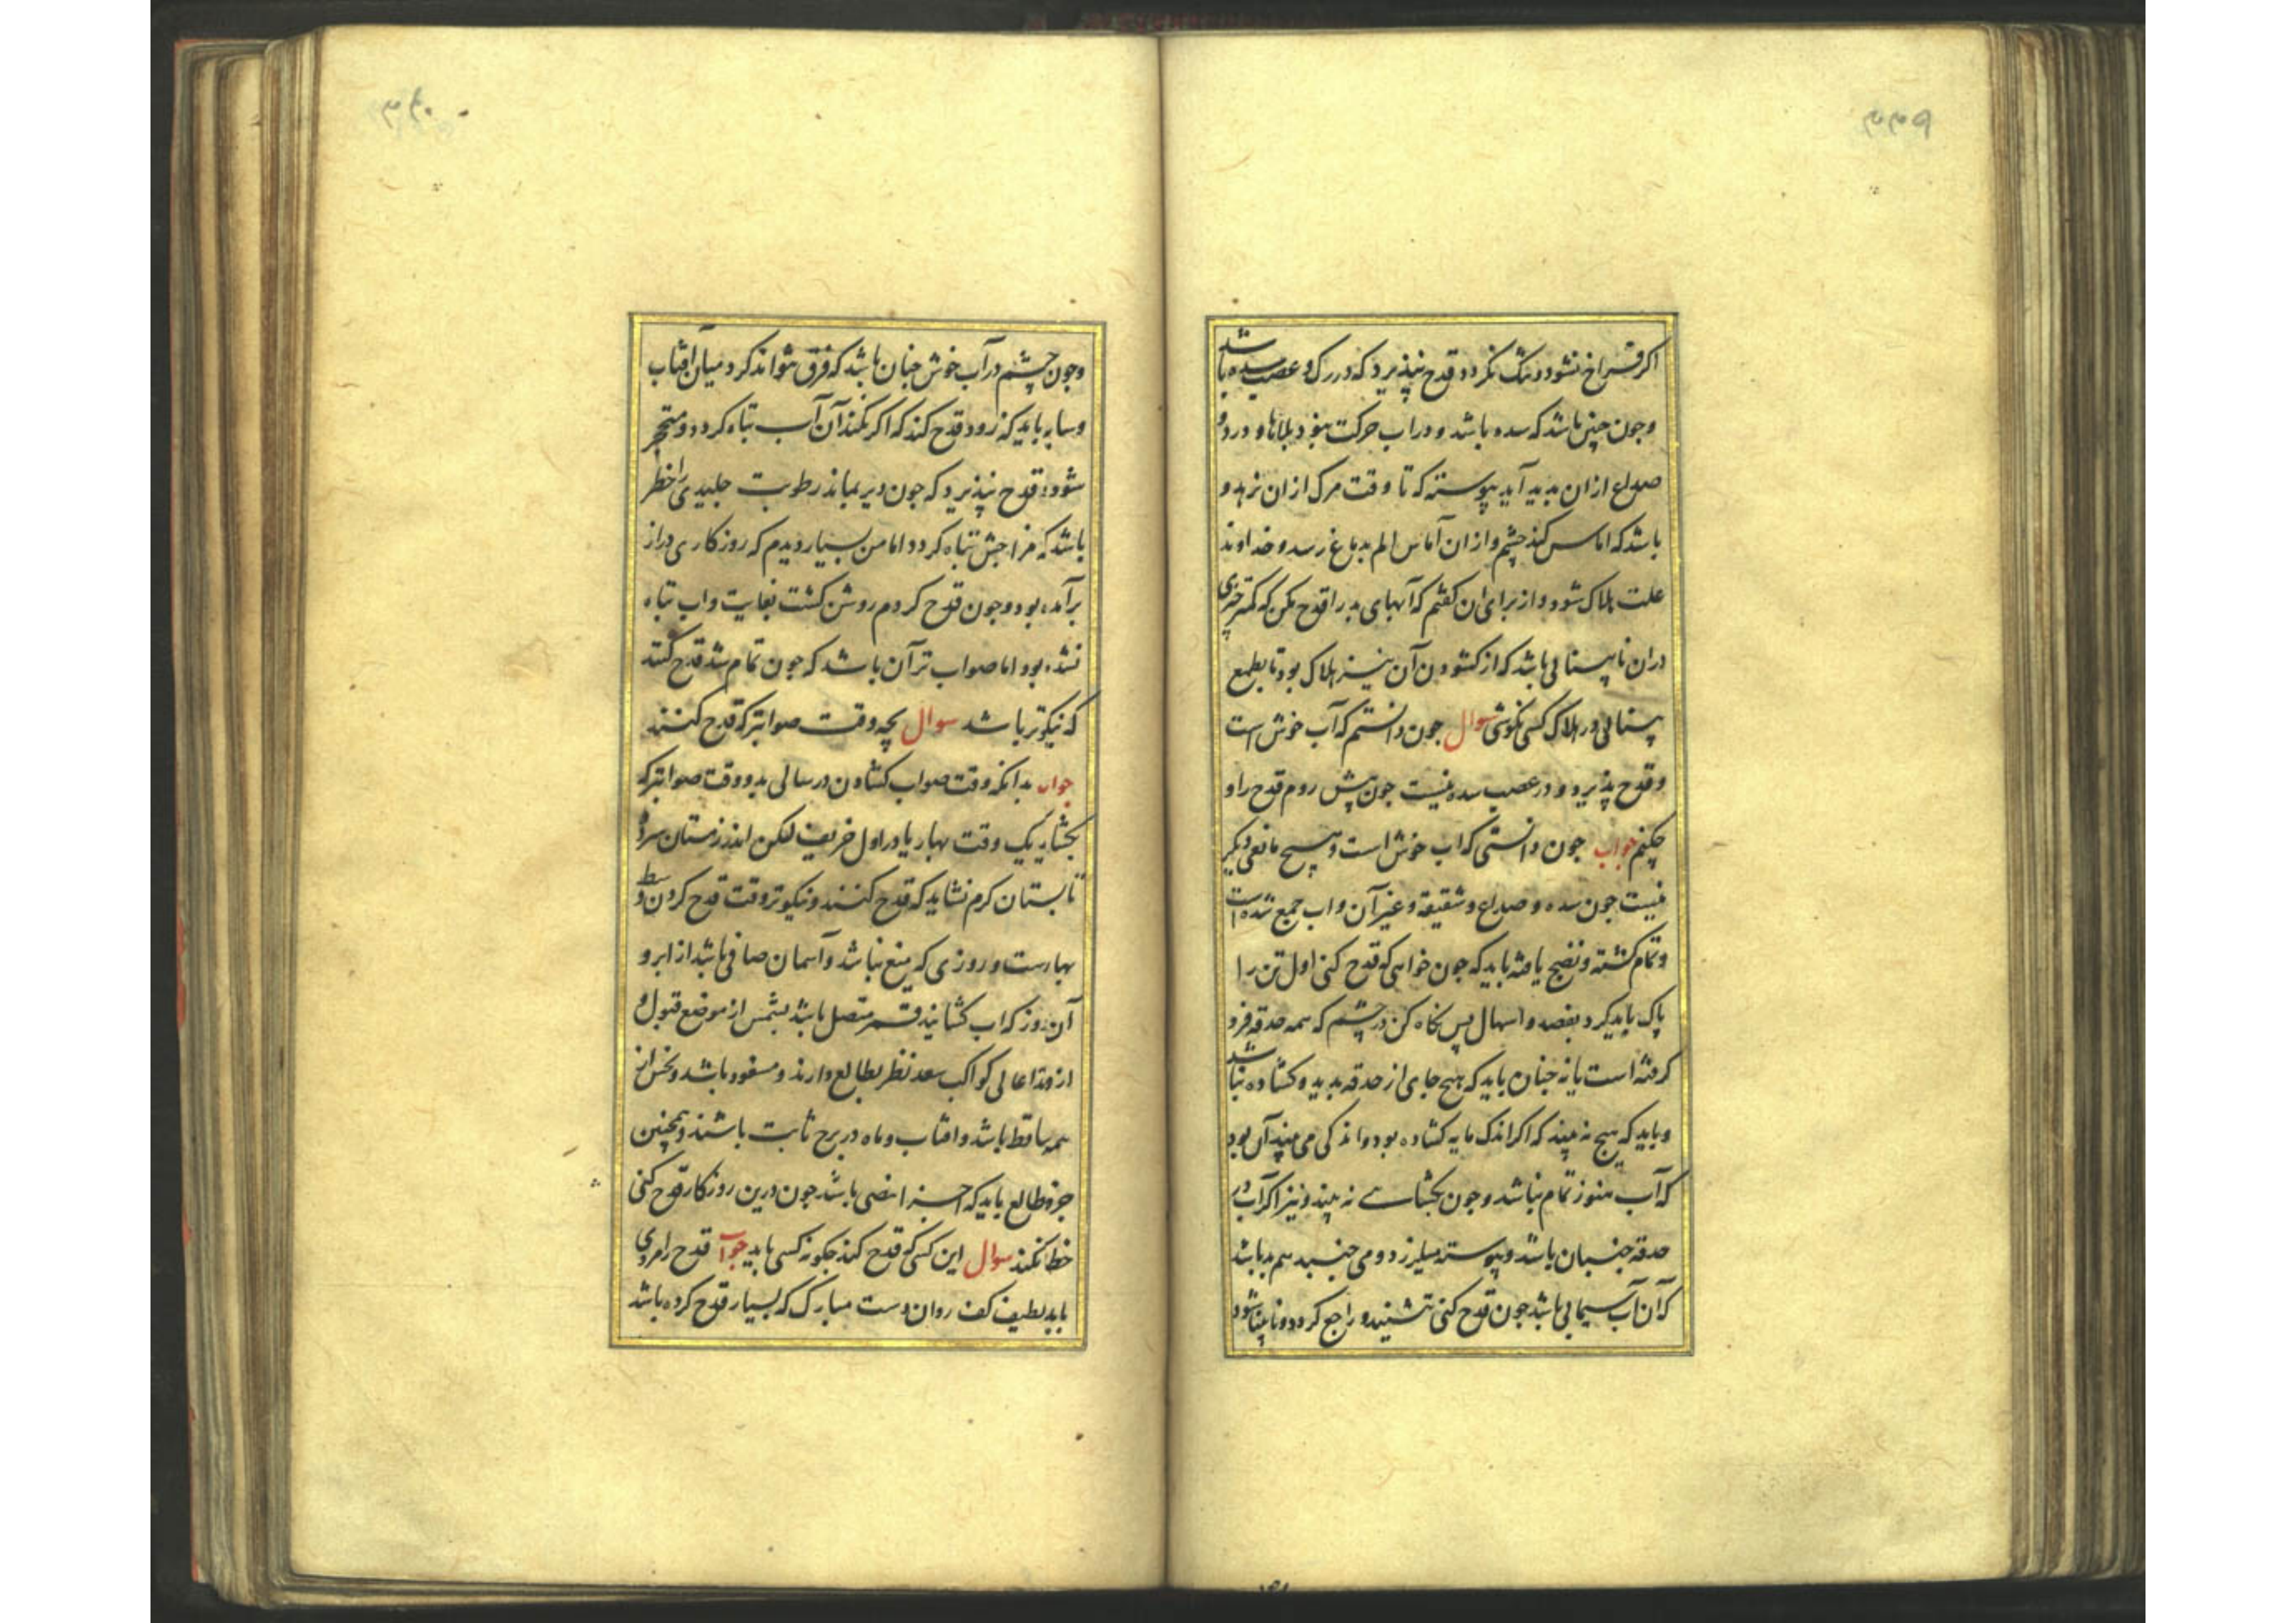 اکر فراخ نشود و تنک نکردد قدح نپذیرد که در رک و عصب سده باشد
وجون جنین باشد که سده باشد و در آب حرکت بود بلاها و درد و
صداع ازان بدید آید پیوسته که تا وقت مرک ازان نرهد و
باشد که اماس کند چشم و ازان آماس الم بدماغ رسد و خداوند
علت هلاک شود و از برای ان کفتم که آبهای بد را قدح مکن که کمتر چیزی
دران نابینائی باشد که از کشودن آن نیز هلاک بود تا بطمع
بینائی در هلاک کسی نکوشی سوال جون دانستم که آب خوش است
و قدح پذیرد و در عصب سده نیست جون پیش روم قدح را و
چکنم جواب جون دانستی که اب خوش است و هیچ مانعی دیکر
نیست جون سده و صداع و شقیقه و غیر آن و اب جمع شده است
و تمام کشته و نضج یافته باید که جون خواهی که قدح کنی اول تن را
پاک باید کرد بفصد و اسهال پس نکاه کن در چشم که همه حدقه فرو
کرفته است یا نه جنان باید که هیچ جای از حدقه بدید و کشاده نباشد
و باید که هیچ نه بیند که اکر اندک مایه کشاده بود و اندکی می بیند آن بود
که آب هنوز تمام نباشد و جون بکشائی نه بیند و نیز اکر آب در
حدقه جنبان باشد و پیوسته میلرزد و می جنبد هم بد باشد
که آن آب سیمابی باشد جون قدح کنی ننشیند و راجع کردد و نابینا شود
وجون چشم در آب خوش جنان باشد که فرق تواند کرد میان افتاب
و سایه باید که زود قدح کند که اکر نکند آن آب تباه کردد و متحجر
شود و قدح نپذیرد که جون دیر بماند رطوبت جلیدی را خطر
باشد که مزاجش تباه کردد اما من بسیار دیدم که روزکاری دراز
برآمده بود و جون قدح کردم روشن کشت بغایت و اب تباه
نشده بود اما صواب تر آن باشد که جون تمام شد قدح کنند
که نیکوتر باشد سوال بچه وقت صوابتر که قدح کنند
جواب بدانکه وقت صواب کشادن در سالی بدو وقت صوابتر که
بکشاید یک وقت بهار یا در اول خریف لکن اندر زمستان سرد و
تابستان کرم نشاید که قدح کنند و نیکوتر وقت قدح کردن وسط
بهارست و روزی که میغ نباشد و آسمان صافی باشد از ابر و
آن روز که اب کشایند قمر متصل باشد بشمس از موضع قبول و
از وتد اعالی کواکب سعد نظر بطالع دارند و مسعود باشد و نحس از
همه ساقط باشد و افتاب و ماه در برج ثابت باشند و همچنین
جزو طالع باید که اجزا مضی باشد جون درین روزکار قدح کنی
خطا نکند سوال این کسی که قدح کند جکونه کسی باید جواب قدح را مردی
باید لطیف کف روان دست مبارک که بسیار قدح کرده باشد